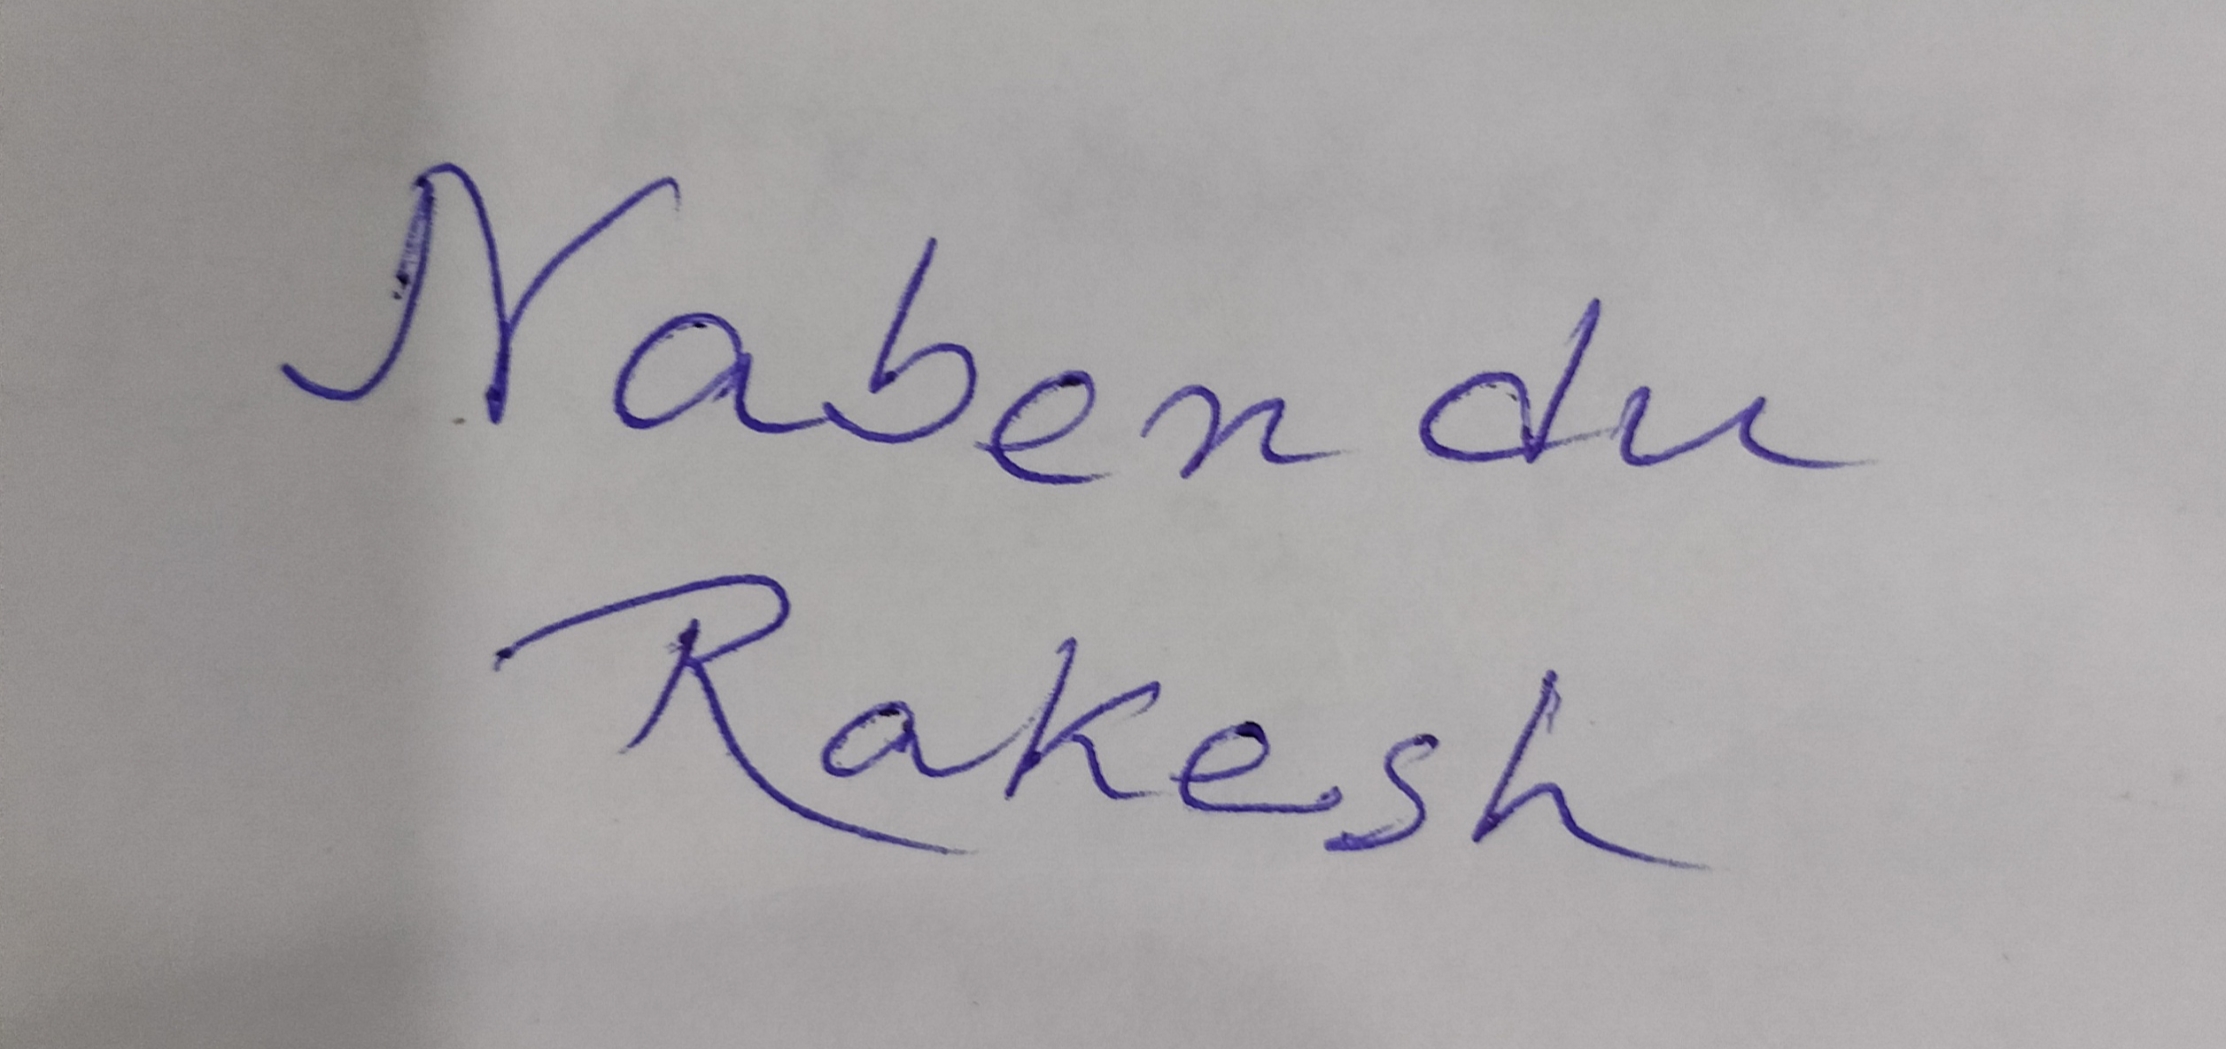 Nabendu
Rakesh